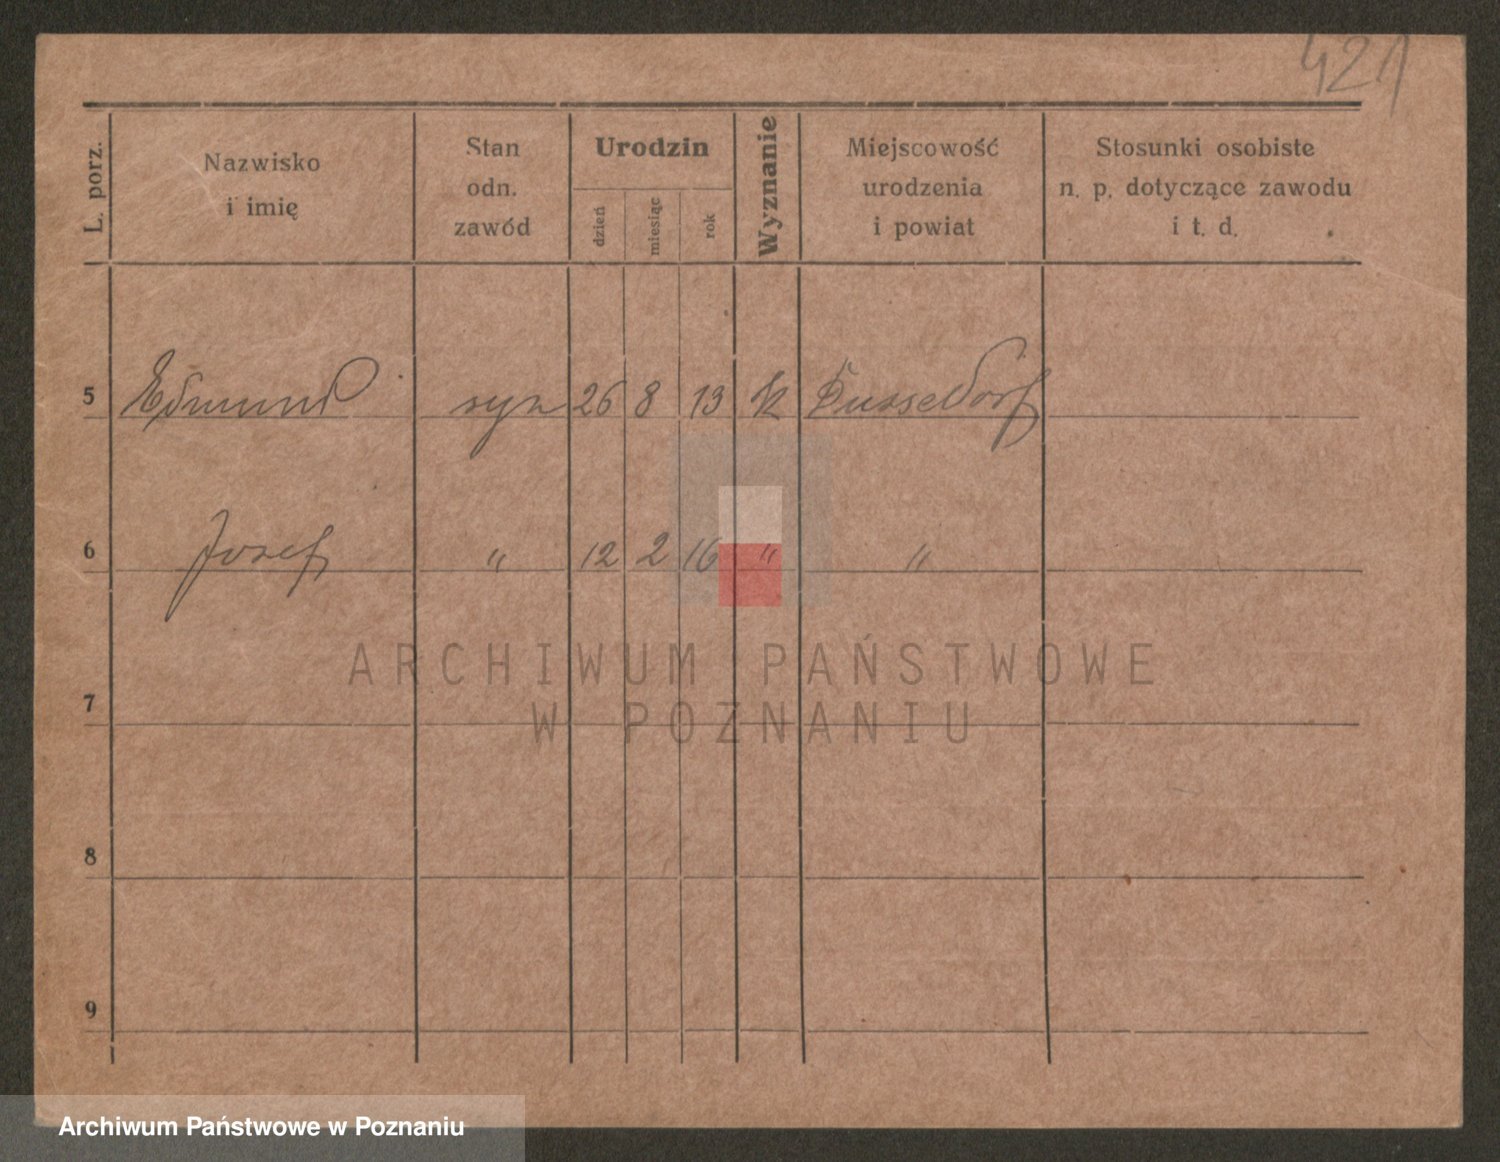 421
L. porz.
Nazwisko
i imię
Stan
odn.
zawód
Urodzin
dzień
miesiąc
rok
Wyznanie
Miejscowość
urodzenia
i powiat
Stosunki osobiste
n. p. dotyczące zawodu
i t. d.
5 Edmund syn 26 8 13 k Dusseldorf
6 Josef " 12 2 16 " "
ARCHIWUM PAŃSTWOWE
W POZNANIU
7
8
9
Archiwum Państwowe w Poznaniu